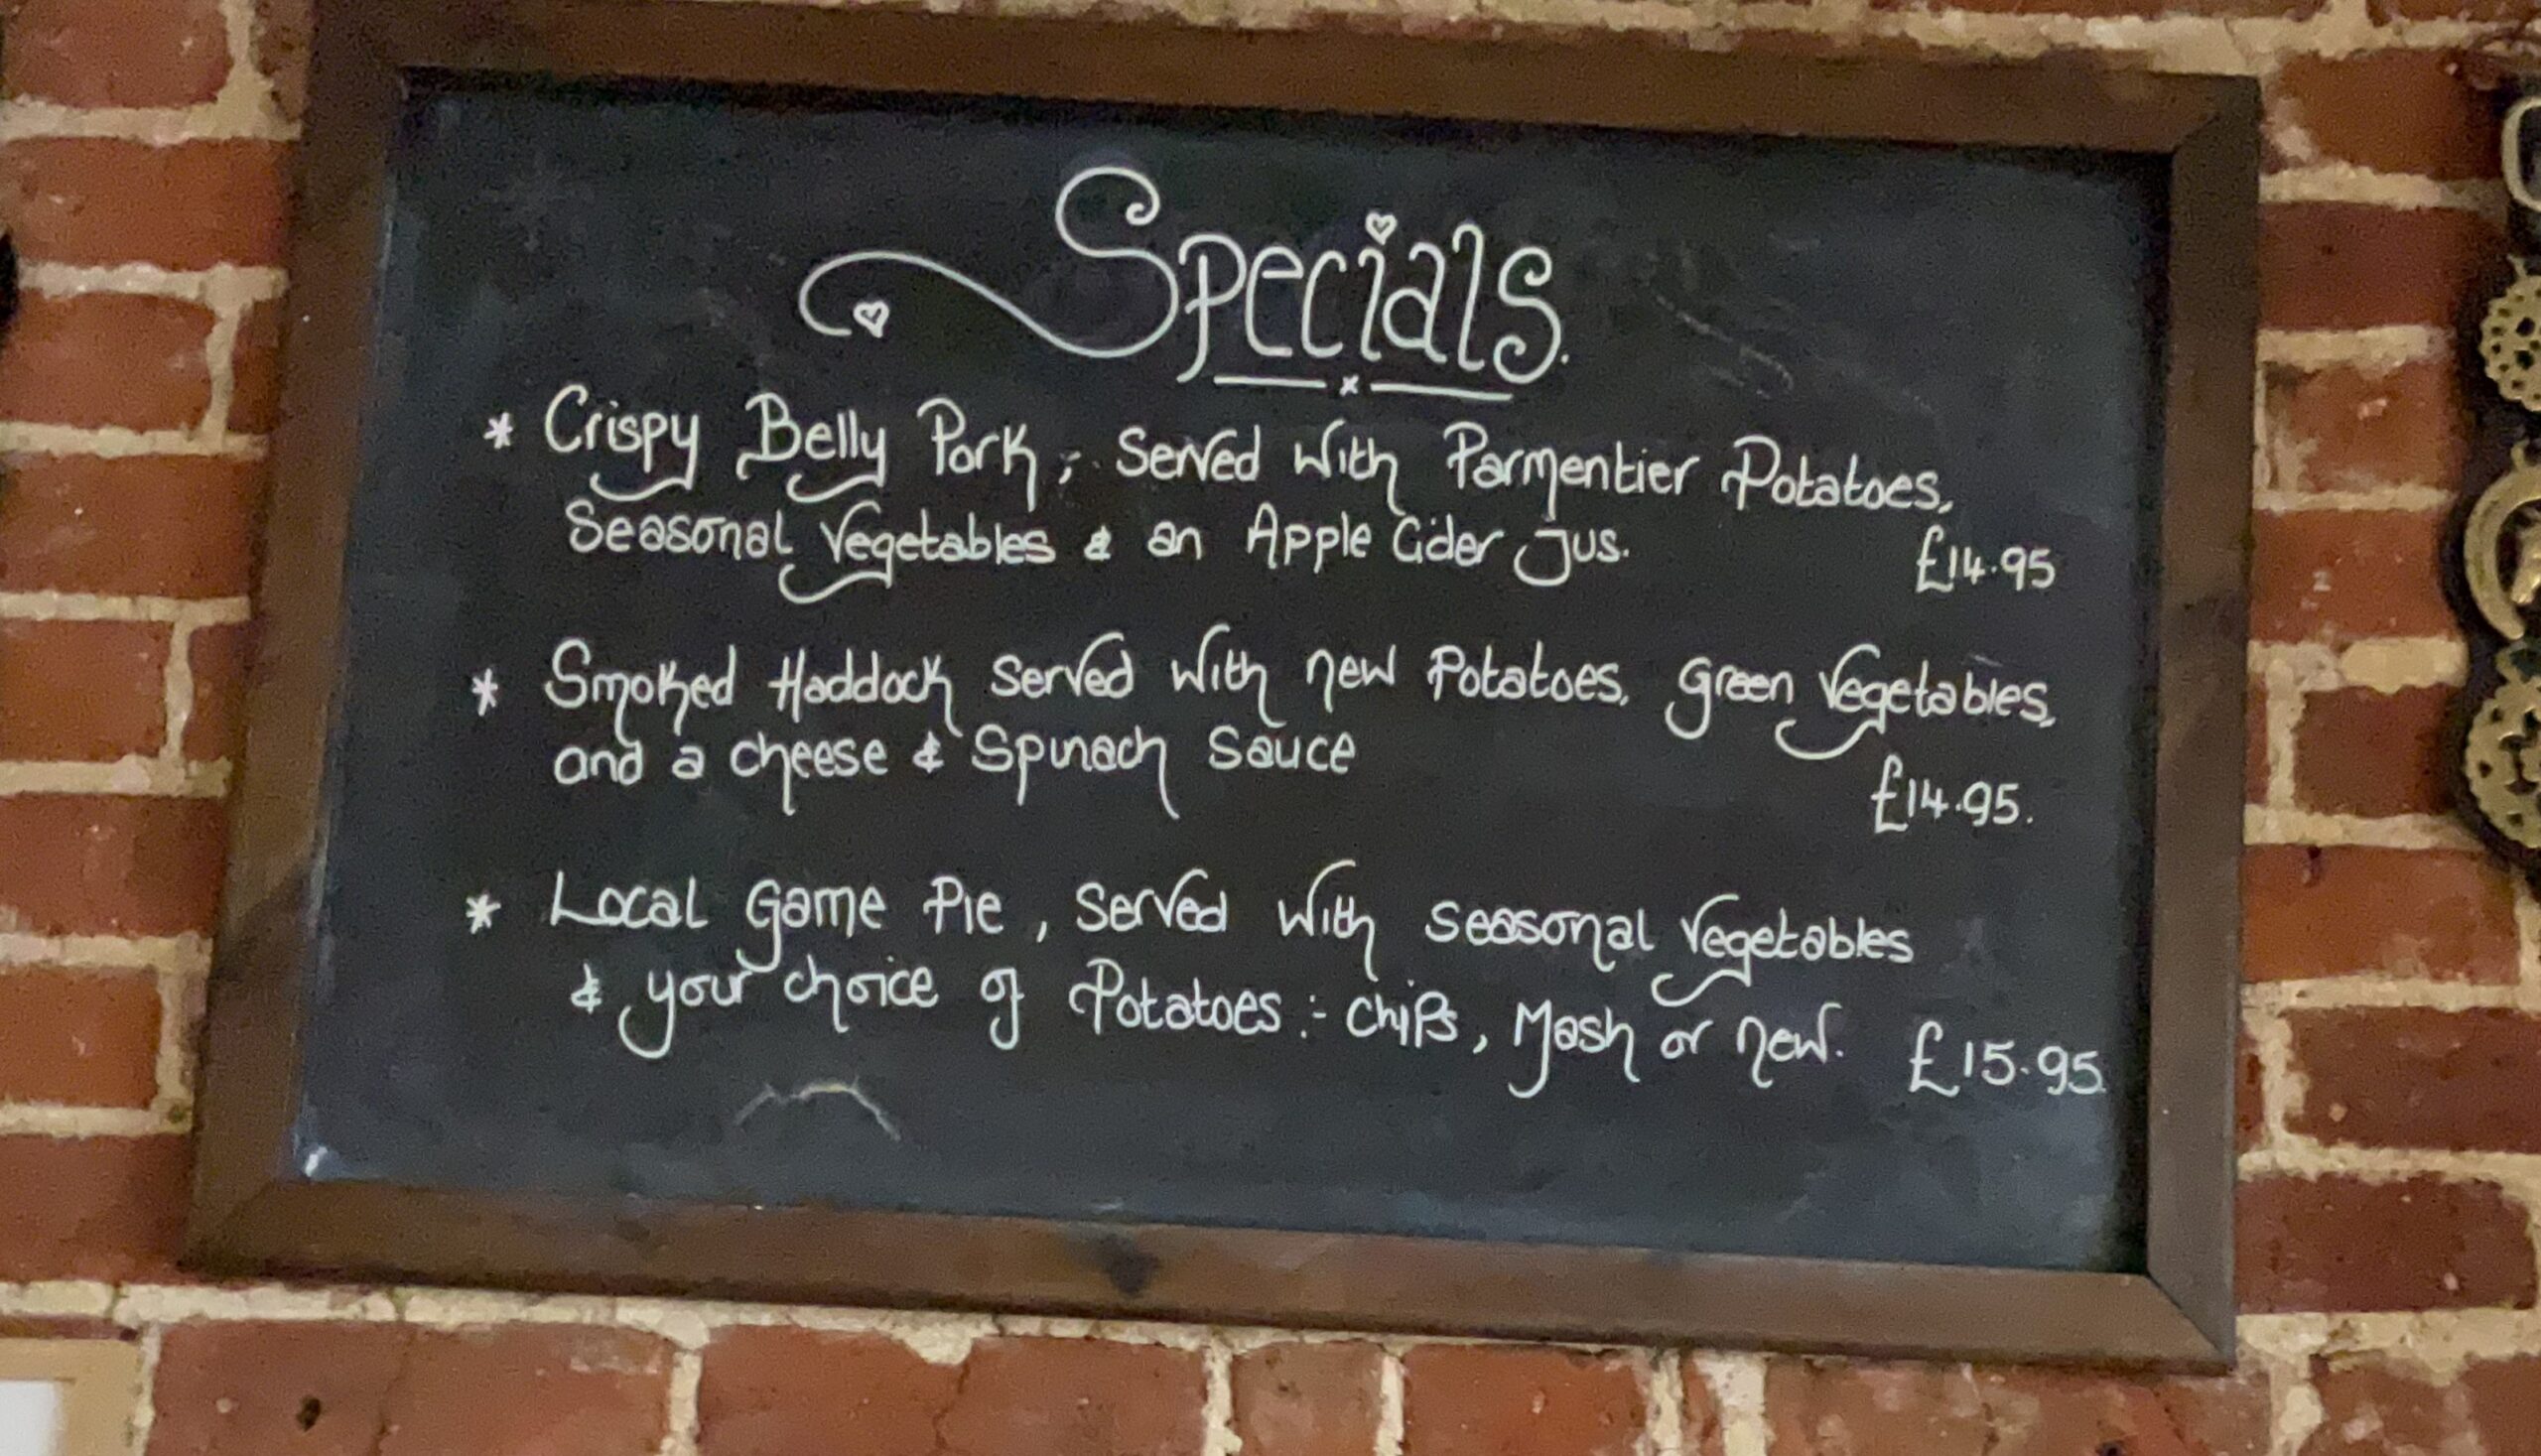 Specials.
* Crispy Belly Pork, Served with Parmentier Potatoes,
Seasonal Vegetables & an Apple Cider Jus.
£14.95
* Smoked Haddock Served with new Potatoes, green Vegetables,
and a cheese & Spinach Sauce
£14.95.
* Local Game Pie, Served with Seasonal Vegetables
& your choice of Potatoes :- Chips, Mash or new. £15.95